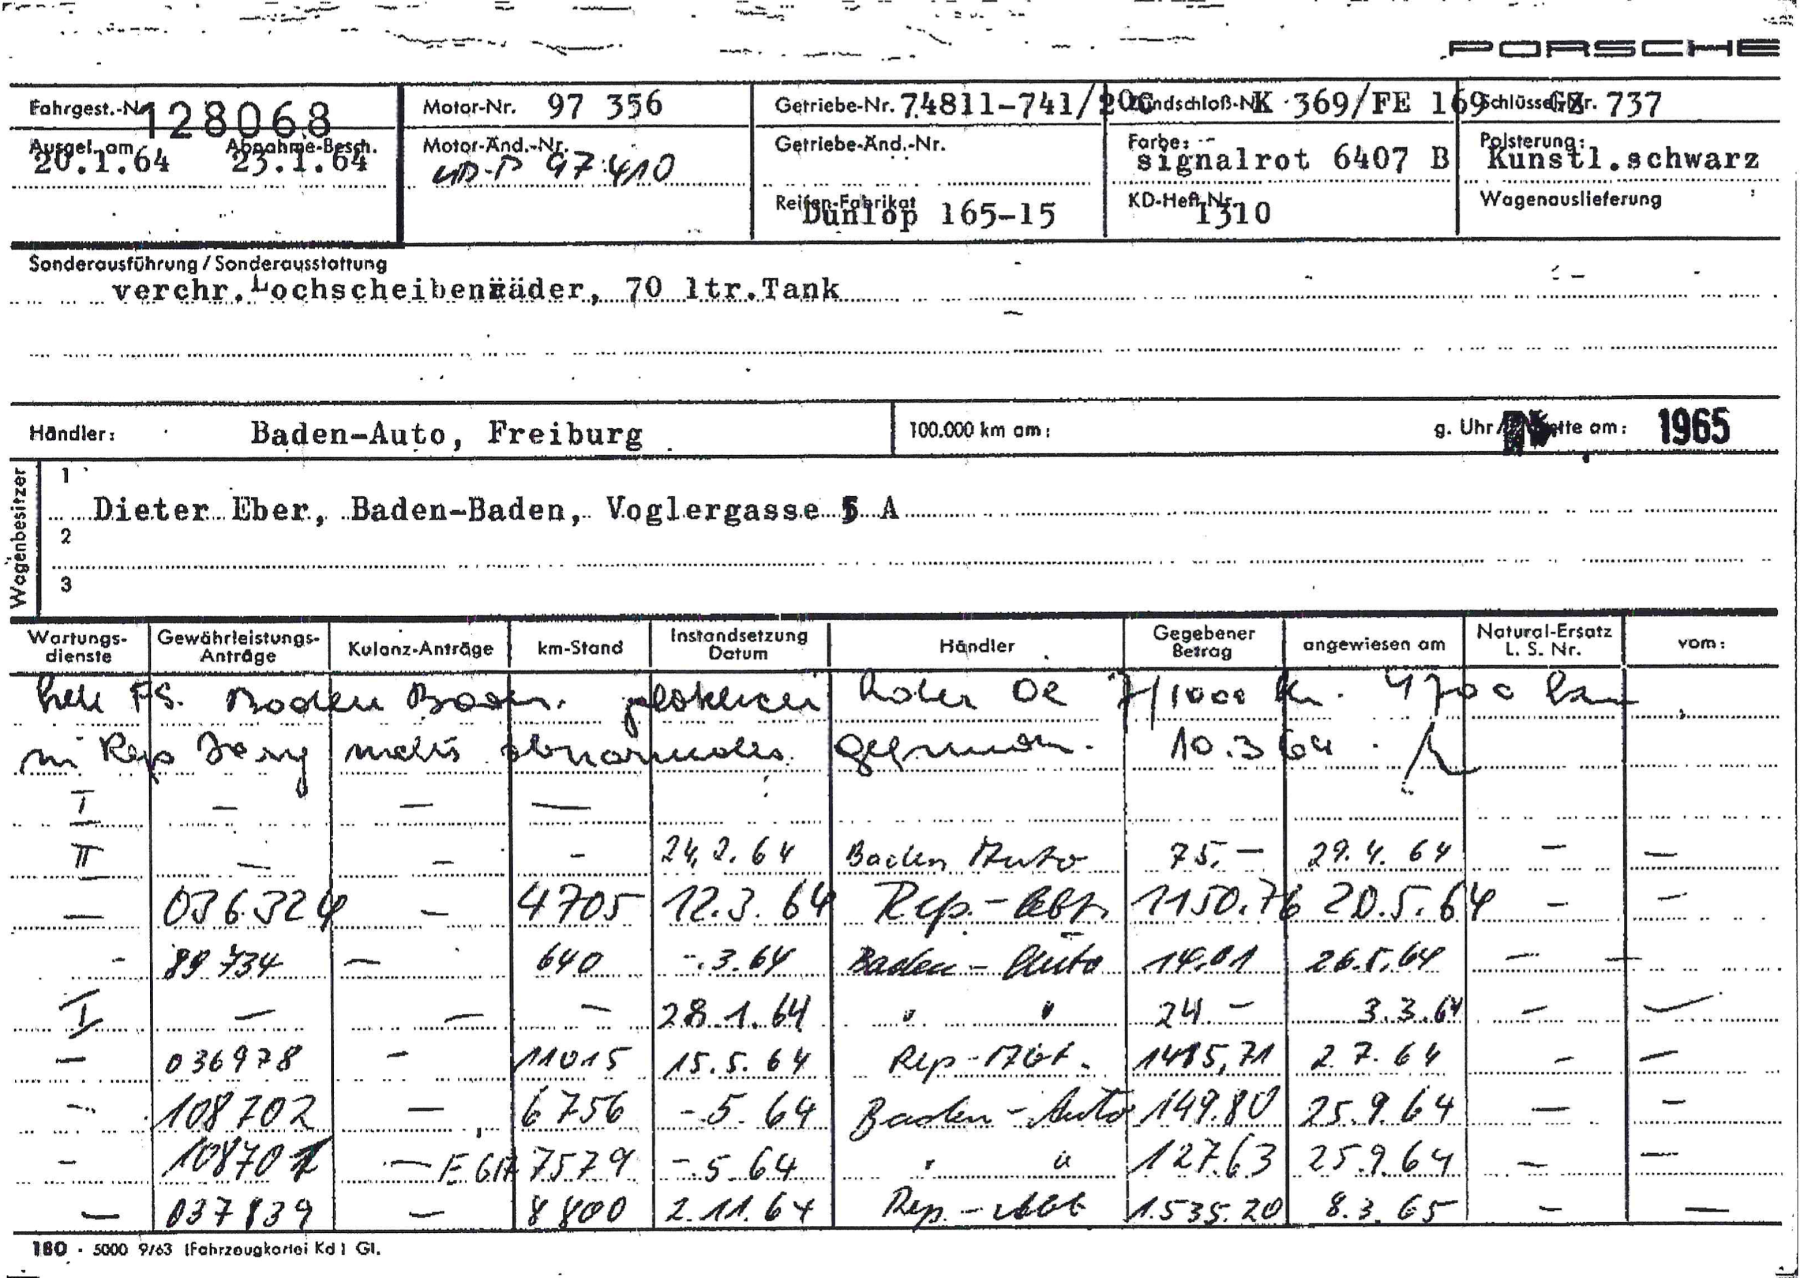 PORSCHE
Fahrgest.-Nr. 128068 Motor-Nr. 97 356 Getriebe-Nr. 74811-741/20C Zündschloß-Nr. K 369/FE 169 Schlüssel-Nr. 737
Ausgel. am 20.1.64 Abnahme-Besch. 23.1.64 Motor-Änd.-Nr. 97410 Getriebe-Änd.-Nr. Farbe: signalrot 6407 B Polsterung: Kunstl.schwarz
Reifen-Fabrikat Dunlop 165-15 KD-Heft-Nr. 1310 Wagenauslieferung
Sonderausführung / Sonderausstattung
verchr. Lochscheibenräder, 70 ltr.Tank
Händler: Baden-Auto, Freiburg 100.000 km am: g. Uhr/ am: 1965
Wagenbesitzer
1
Dieter Eber, Baden-Baden, Voglergasse 5 A
2
3
Wartungs-dienste Gewährleistungs-Anträge Kulanz-Anträge km-Stand Instandsetzung Datum Händler Gegebener Betrag angewiesen am Natural-Ersatz L. S. Nr. vom:
FS. Baden Baden. hoher Oel 7/1000 Km. 4700 km
Rep nichts abnormales gefunden. 10.3 64.
I — — —
II — — – 24.2.64 Baden Auto 75.— 29.4.64 — —
— 036324 — 4705 12.3.64 Rep.-Abt. 1150.76 20.5.64 – —
– 89734 — 640 -.3.64 Baden-Auto 14.01 26.5.64 — —
I — — — 28.1.64 " " 24.– 3.3.64 —
— 036978 – 11015 15.5.64 Rep-Abt. 1485,71 2.7.64 – —
– 108702 — 6756 -.5.64 Baden-Auto 149.80 25.9.64 — —
– 108701 — 7579 -.5.64 " " 127.63 25.9.64 — —
— 037839 — 8800 2.11.64 Rep.-Abt 1.535.20 8.3.65 – —
180 · 5000 9/63 (Fahrzeugkartei Kd) Gl.